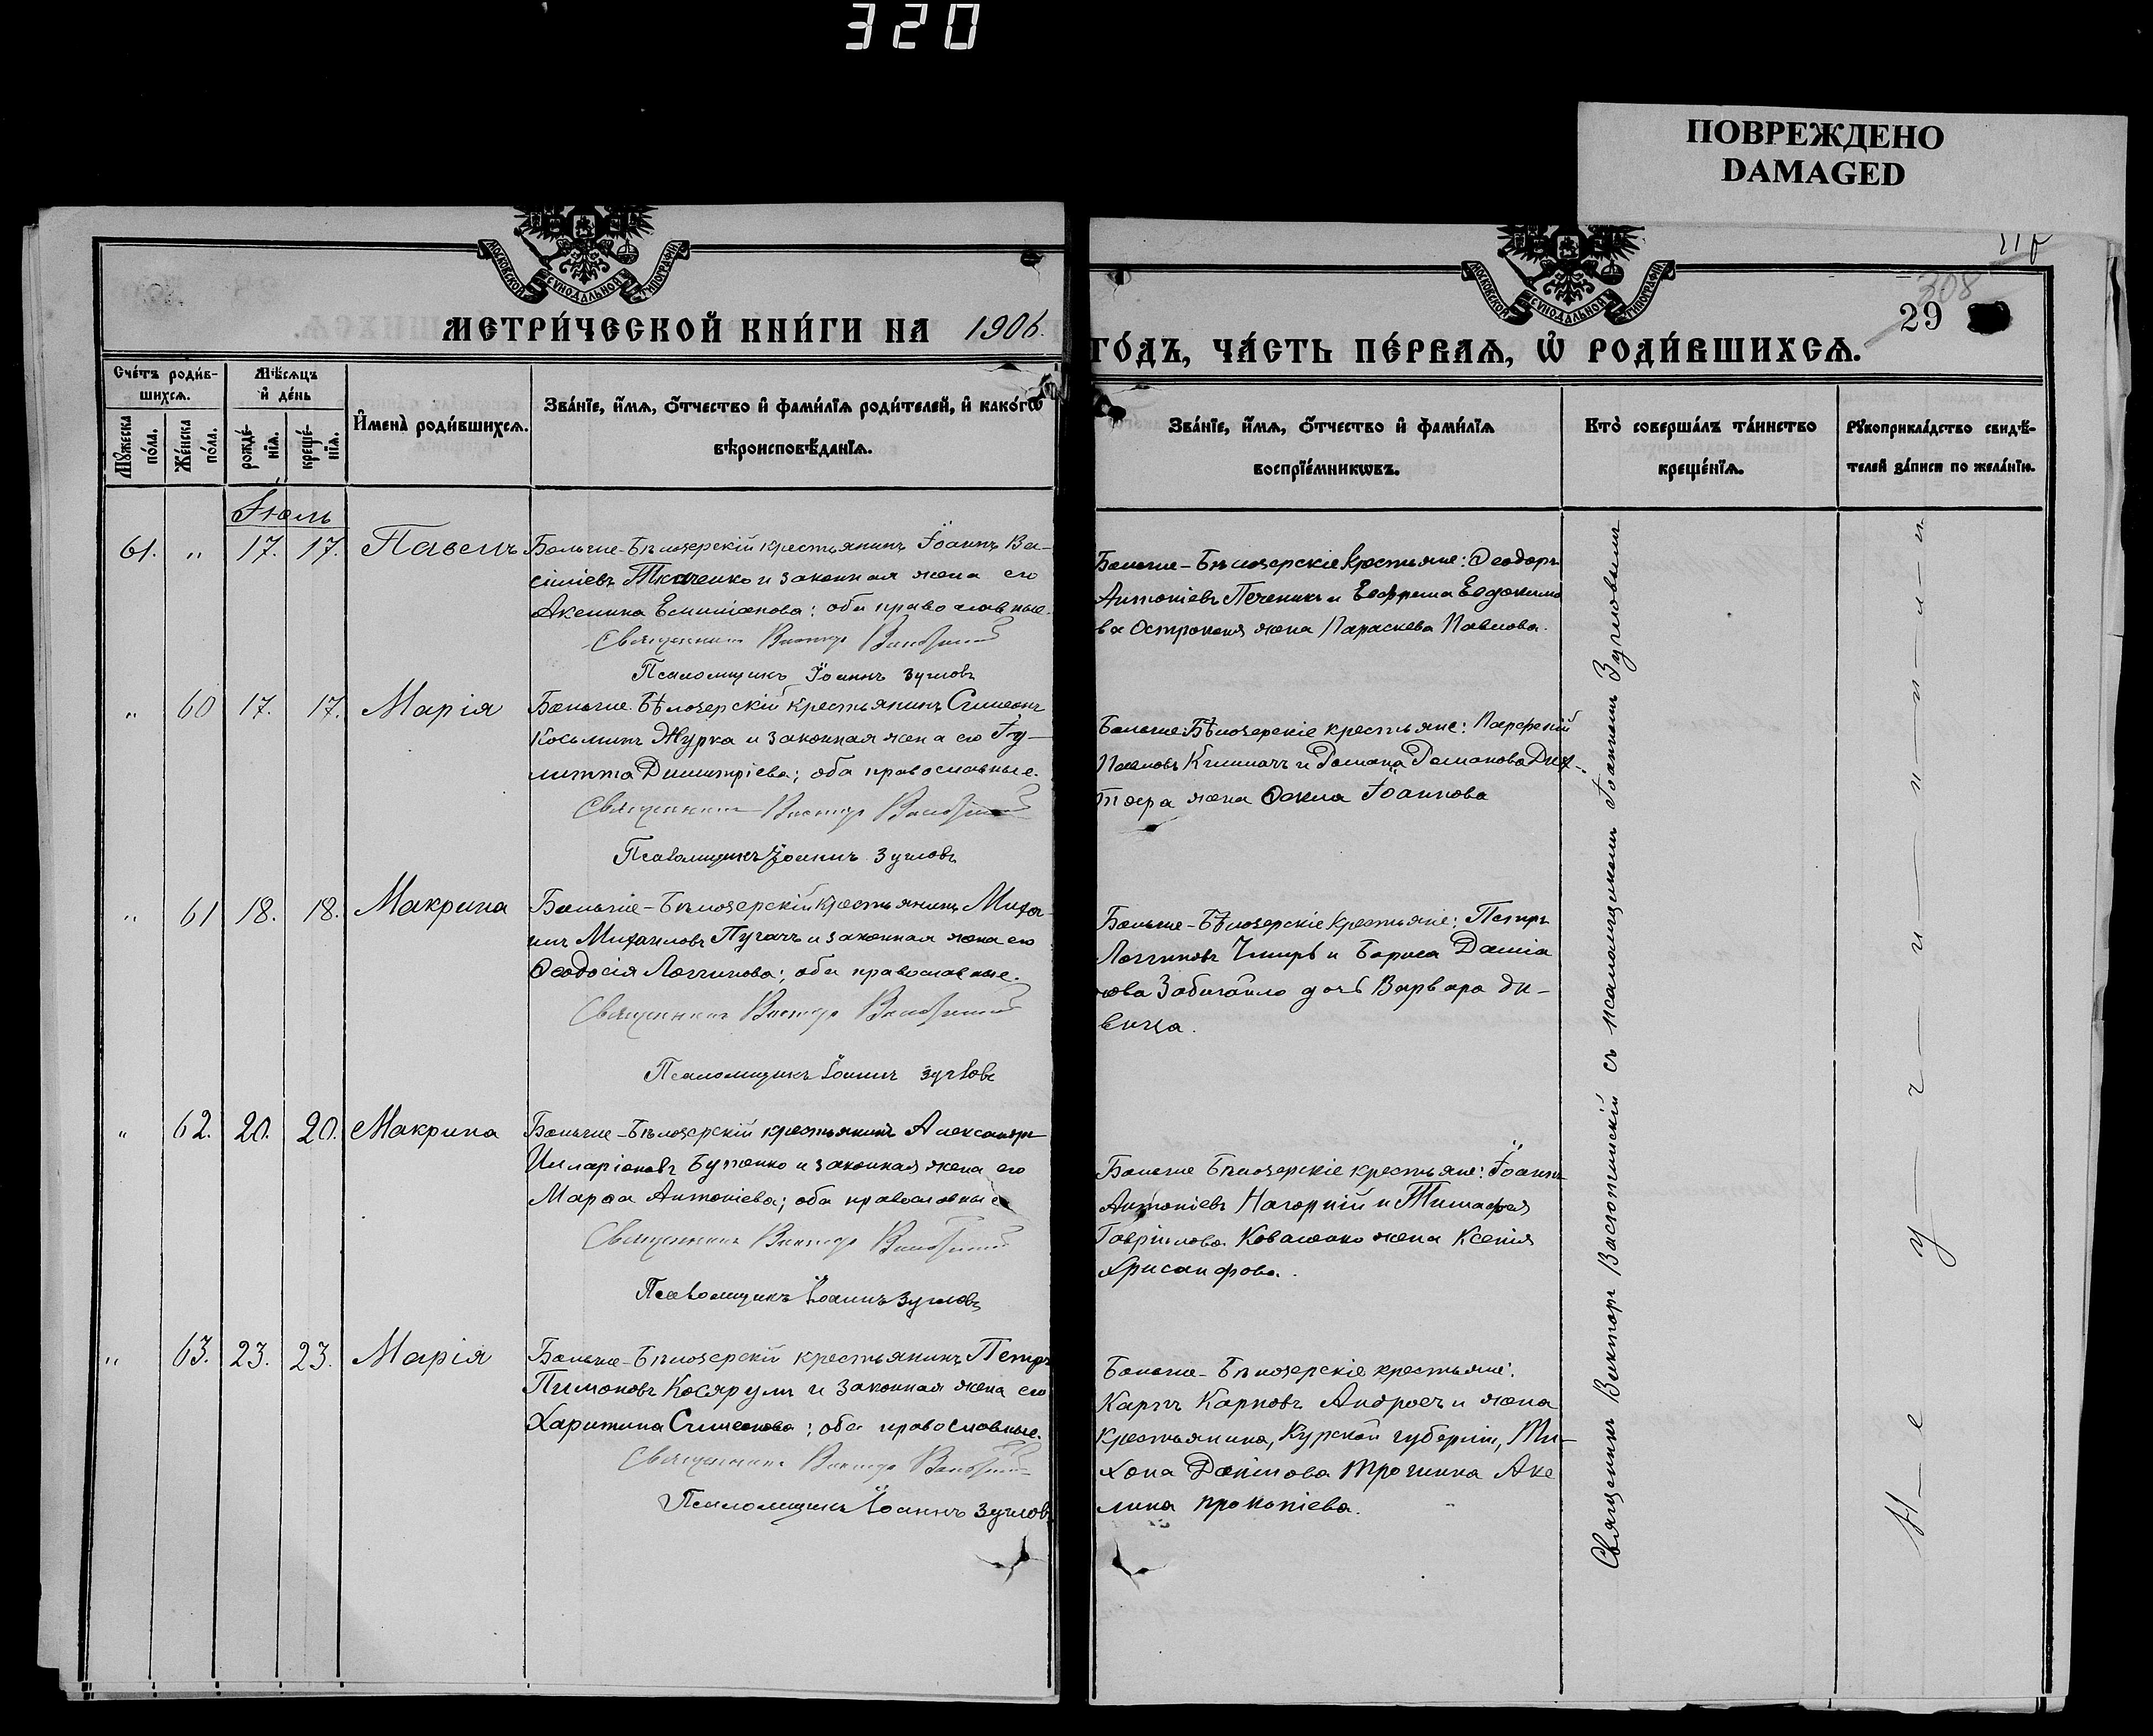 320
ПОВРЕЖДЕНО
DAMAGED
МОСКОВСКОЙ СѴНОДАЛЬНОЙ ТИПОГРАФІИ
МОСКОВСКОЙ СѴНОДАЛЬНОЙ ТИПОГРАФІИ
308
29
МЕТРИ́ЧЕСКОЙ КНИ́ГИ НА 1906.
ГО́ДЪ, ЧА́СТЬ ПЕ́РВАѦ, Ѡ҆ РОДИ́ВШИХСѦ.
Сче́тъ роди́в-
шихсѧ.
Мꙋжеска по́ла.
Же́нска по́ла.
Мѣ́сѧцъ
и҆ де́нь
рожде́-
нїѧ.
креще́-
нїѧ.
И҆мена̀ роди́вшихсѧ.
Зва́нїе, и҆́мѧ, ѻ҆́тчество и҆ фами́лїѧ роди́телей, и҆ како́гѡ
вѣроисповѣ́данїѧ.
Зва́нїе, и҆́мѧ, ѻ҆́тчество и҆ фами́лїѧ
воспрїе́мникѡвъ.
Кто̀ соверша́лъ та́инство
креще́нїѧ.
Рꙋкоприкла́дство свидѣ́-
телей за́писи по жела́нїю.
Іюль
61. „ 17. 17. Павелъ Больше-Бѣлозерскій крестьянинъ Іоаннъ Ва-
силіевъ Ткаченко и законная жена его
Акелина Емиліанова; оба православные.
Священникъ Викторъ
Псаломщикъ Іоаннъ Зугловъ
Больше-Бѣлозерскіе крестьяне: Ѳеодоръ
Антоніевъ Печеникъ и Евфрема Евдокимо
ва Остроконя жена Параскева Павлова.
„ 60 17. 17. Марія Больше-Бѣлозерскій крестьянинъ Симеонъ
Косьминъ Журка и законная жена его Іу-
литта Димитріева; оба православные.
Священникъ Викторъ
Псаломщикъ Іоаннъ Зугловъ
Больше-Бѣлозерскіе крестьяне: Парфеній
Павловъ Климачъ и Романа Романова
жена Ѳекла Іоаннова
„ 61 18. 18. Макрина Больше-Бѣлозерскій крестьянинъ Миха-
илъ Михаиловъ Пугачъ и законная жена его
Ѳеодосія Логгинова; оба православные.
Священникъ Викторъ
Псаломщикъ Іоаннъ Зугловъ
Больше-Бѣлозерскіе крестьяне: Петръ
Логгиновъ Чмирь и Бориса Даміа
нова Забигайло дочь Варвара дѣ-
вица.
„ 62. 20. 20. Макрина Больше-Бѣлозерскій крестьянинъ Александръ
Илларіоновъ Бутенко и законная жена его
Марѳа Антоніева; оба православные
Священникъ Викторъ
Псаломщикъ Іоаннъ Зугловъ
Больше Бѣлозерскіе крестьяне: Іоаннъ
Антоніевъ Нагорній и Тимофея
Гавріилова Коваленко жена Ксенія
Хрисанфова.
„ 63. 23. 23. Марія Больше-Бѣлозерскій крестьянинъ Петръ
Пимоновъ Косяругъ и законная жена его
Харитина Симеонова; оба православные.
Священникъ Викторъ
Псаломщикъ Іоаннъ Зугловъ
Больше-Бѣлозерскіе крестьяне:
Карпъ Карповъ Андросъ и жена
крестьянина, Курской губерніи, Ти-
хона Данилова Трошина Аке
лина Прокопіева.
Священникъ Викторъ съ псаломщикомъ Іоанномъ Зугловымъ